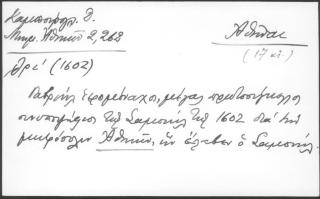 Καμπούρογλ. Δ.
Μνημ. Ἀθηνῶν 2, 268
Ἀθῆναι
(17 αἰ.)
αχβ´ (1602)
Γαβριὴλ ἱερομόναχος, μέγας πρωτοσύγκελλος
συνυποψήφιος τοῦ Σαμουὴλ τῷ 1602 διὰ τὴν
μητρόπολιν Ἀθηνῶν, ἣν ἔλαβεν ὁ Σαμουήλ.